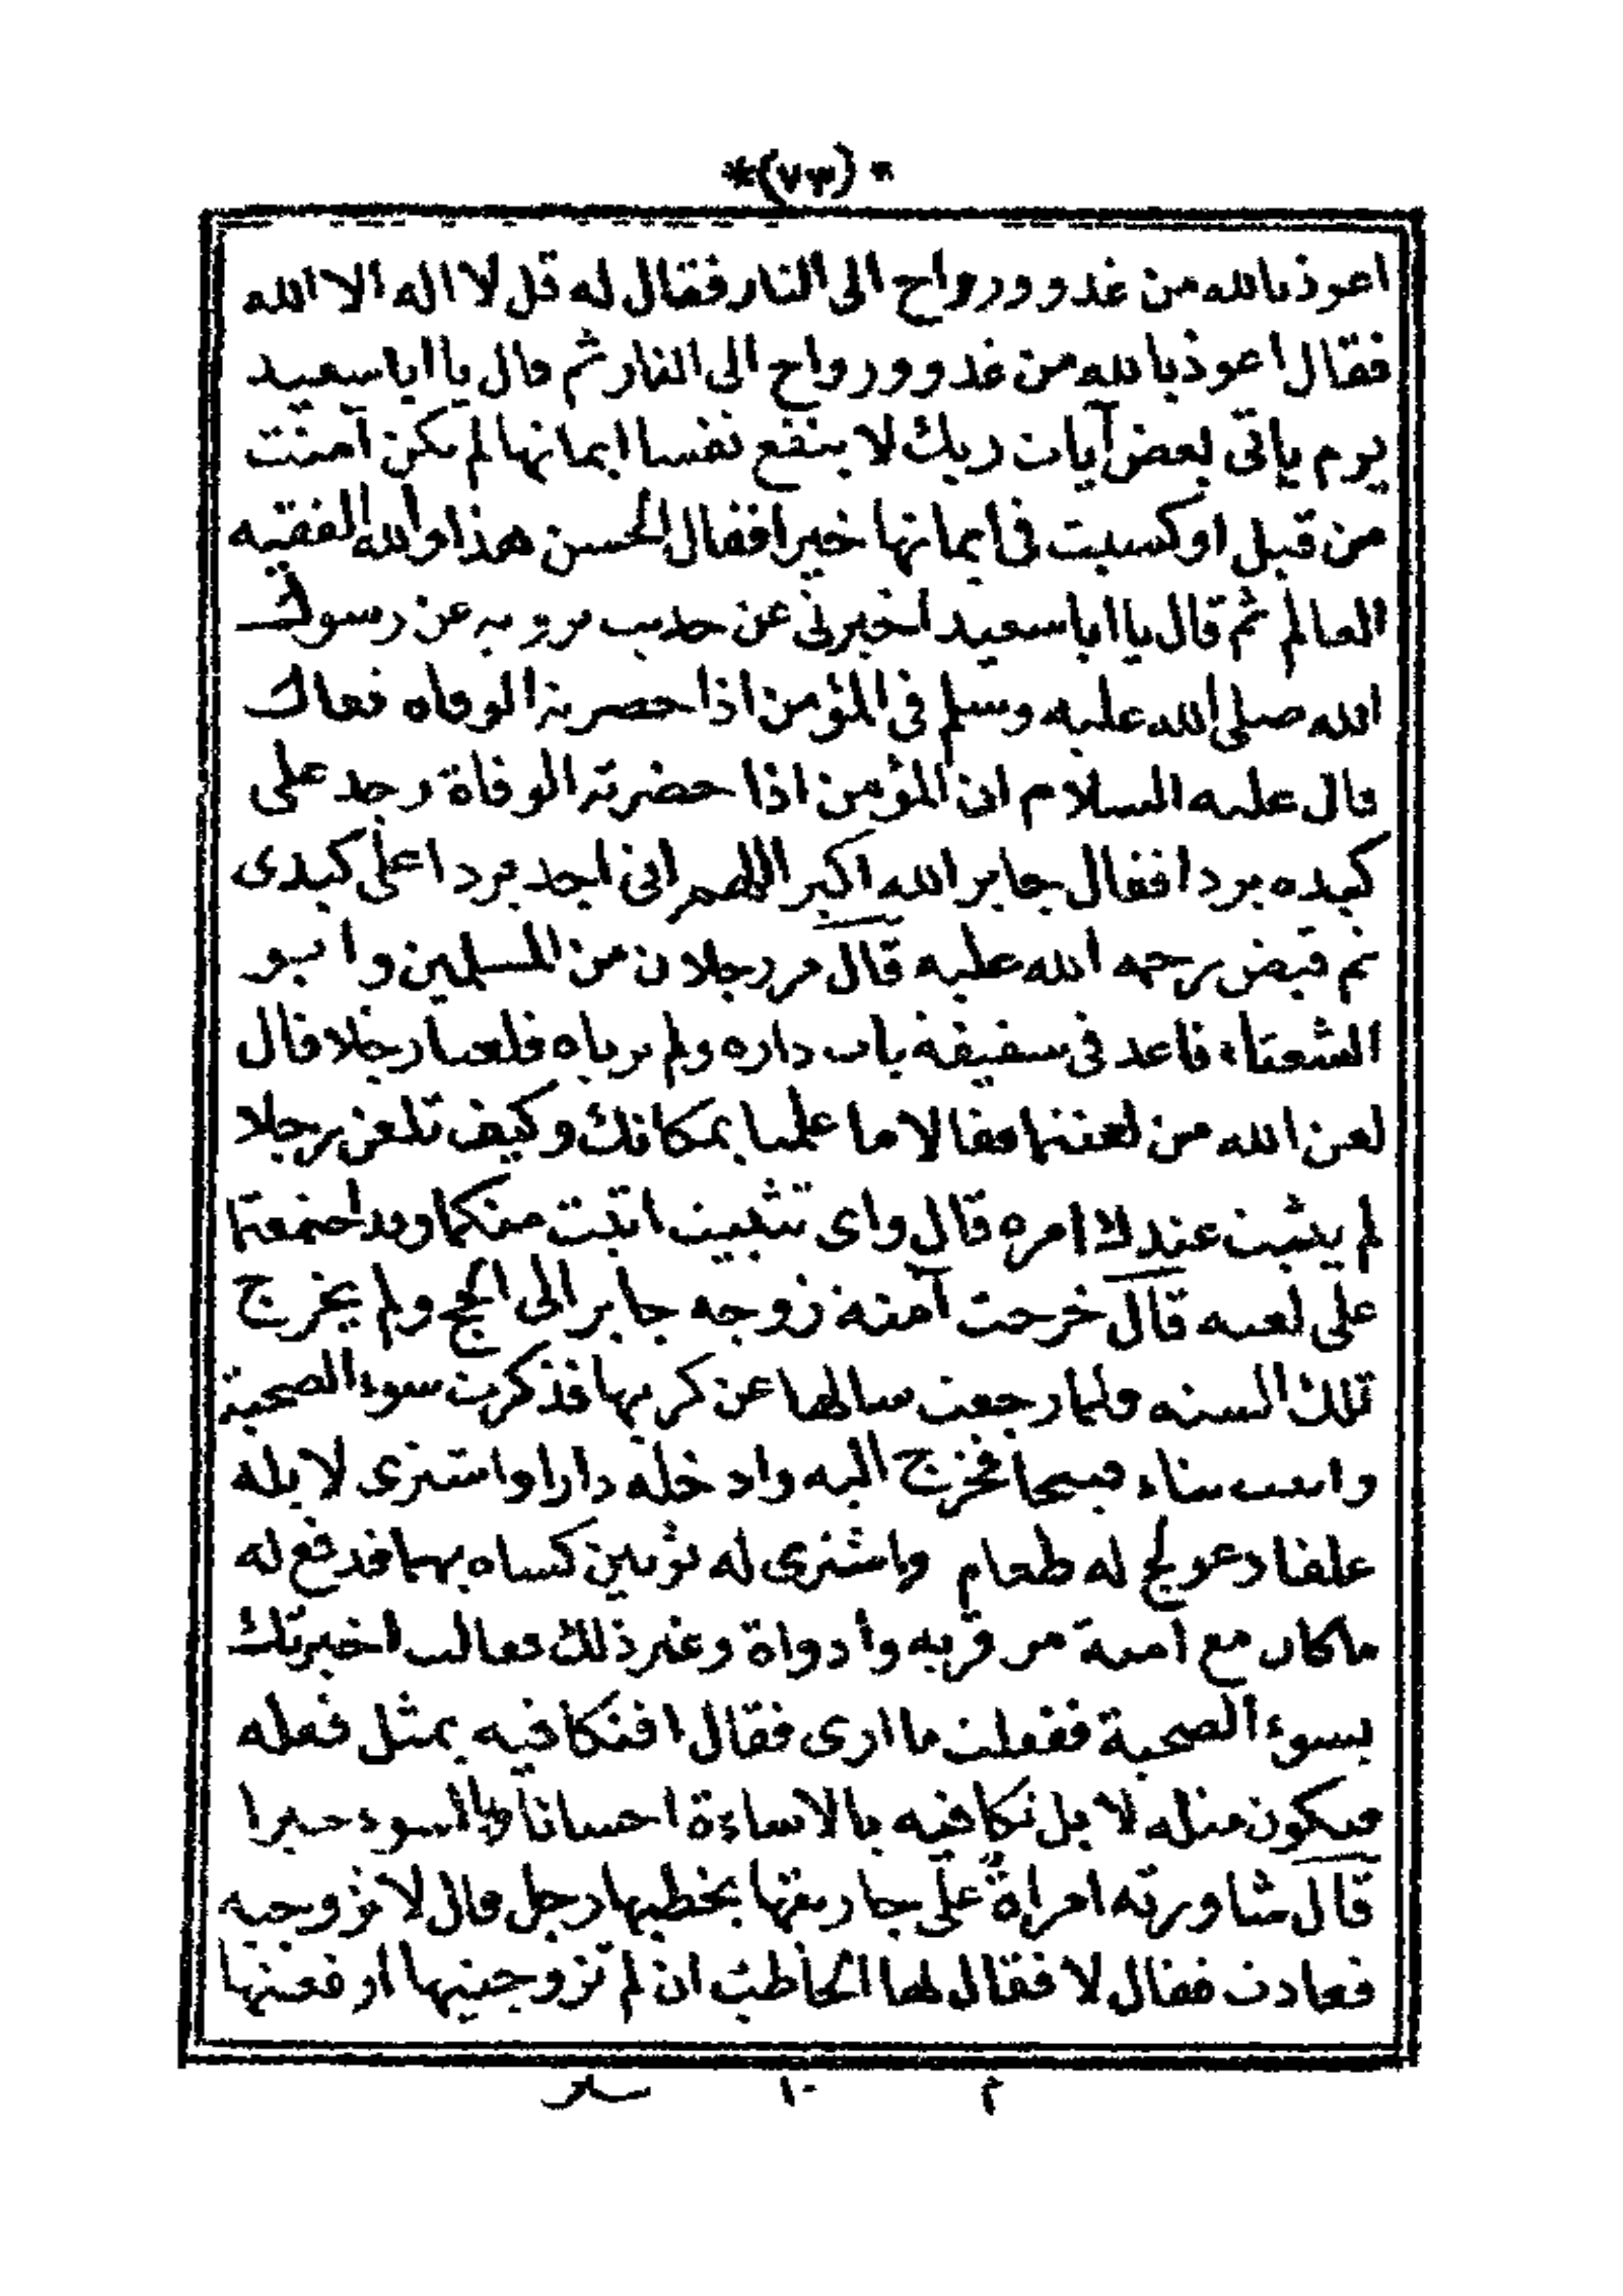 *(٧٣)*
اعوذ بالله من غدو ورواح الى النار فقال له قل لا اله الا الله
فقال اعوذ بالله من غدو ورواح الى النار ثم قال يا ابا سعيد
يوم ياتى بعض آيات ربك لا ينفع نفسا ايمانها لم تكن آمنت
من قبل او كسبت فى ايمانها خيرا فقال الحسن هذا والله الفقيه
العالم ثم قال يا ابا سعيد اخبرنى عن حديث ترويه عن رسول
الله صلى الله عليه وسلم فى المؤمن اذا حضرته الوفاة فقال
قال عليه السلام ان المؤمن اذا حضرته الوفاة وجد على
كبده بردا فقال جابر الله اكبر اللهم انى اجد بردا على كبدى
ثم قبض رحمه الله عليه قال مر رجلان من المسلمين وابو
الشعثاء قاعد فى سقيفة باب داره ولم يرياه فلعنا رجلا قال
لعن الله من لعنتما فقالا ما علمنا بمكانك وكيف تلعن رجلا
لم يثبت عندك امره قال واى تثبيت اثبت منكما وقد اجتمعتما
على لعنه قال خرجت آمنة زوجه جابر الى الحج ولم يخرج
تلك السنه فلما رجعت سالها عن كريها فذكرت سوء الصحبة
واثنت ثناء قبيحا فخرج اليه وادخله دارا واشترى لابله
علفا وعولج له طعام واشترى له ثوبين كساه بهما فدفع له
ما كان مع امنة من قربه وادواة وغير ذلك فقالت اخبرتك
بسوء الصحبة ففعلت ما ارى فقال افنكافيه بمثل فعله
فنكون مثله لا بل نكافيه بالاساءة احسانا وبالسوء خيرا
قال شاورته امراة على جاريتها يخطبها رجل قال لا تزوجيه
فعادت فقال لا فقال لها الخاطب ان لم تزوجينها اوقعتها
م ١٠ سلر